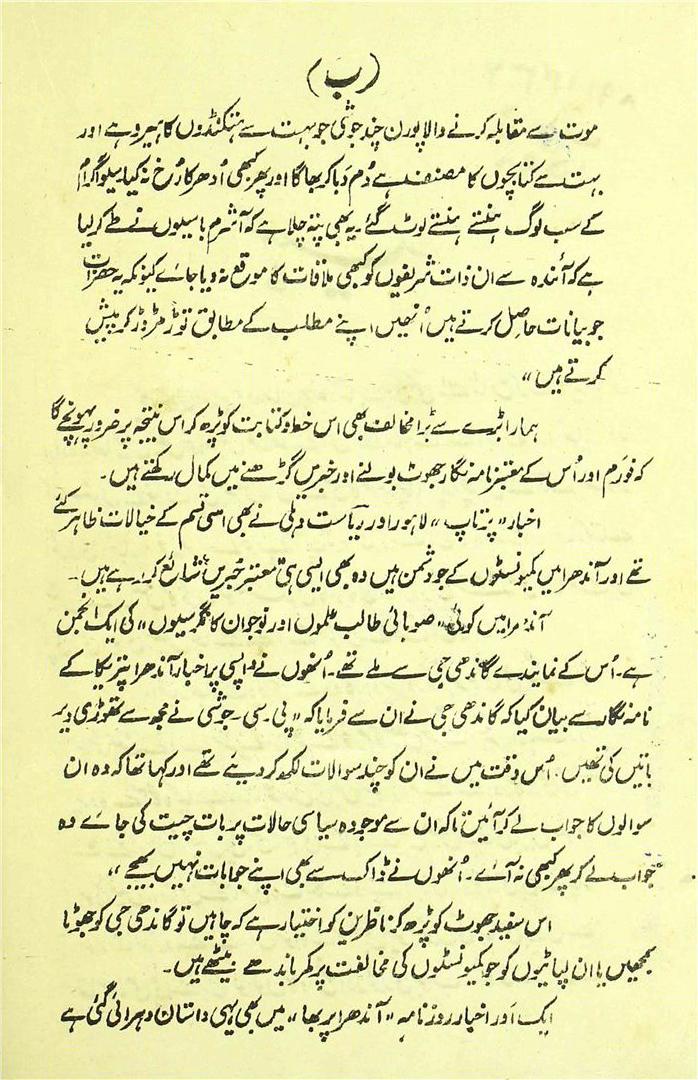 (ب)
موت سے مقابلہ کرنے والا پورن چند جوشی جو بہت سے ہتکنڈوں کا ہیرو ہے اور
بہت سے کتابچوں کا مصنف ہے دُم دبا کر بھاگا اور پھر کبھی اُدھر کا رُخ نہ کیا۔ سیواگرام
کے سب لوگ ہنستے ہنستے لوٹ گئے۔ یہ بھی پتہ چلا ہے کہ آشرم باسیوں نے طے کر لیا
ہے کہ آئندہ سے ان ذات شریفوں کو کبھی ملاقات کا موقع نہ دیا جائے کیونکہ یہ حضرات
جو بیانات حاصل کرتے ہیں اُنھیں اپنے مطلب کے مطابق توڑ مڑوڑ کر پیش
کرتے ہیں"
ہمارا بڑے سے بڑا مخالف بھی اس خط و کتابت کو پڑھ کر اس نتیجہ پر ضرور پہونچے گا
کہ فورم اور اُس کے معتبر نامہ نگار جھوٹ بولنے اور خبریں گڑھنے میں کمال رکھتے ہیں۔
اخبار "پرتاپ" لاہور اور ریاست دہلی نے بھی اسی قسم کے خیالات ظاہر کئے
تھے اور آندھرا میں کمیونسٹوں کے جو دشمن ہیں وہ بھی ایسی ہی "معتبر خبریں" شائع کر رہے ہیں۔
آندھرا میں کوئی "صوبائی طالب علموں اور نوجوان کانگرسیوں" کی ایک انجمن
ہے۔ اُس کے نمایندے گاندھی جی سے ملے تھے۔ اُنھوں نے واپسی پر اخبار آندھرا پتریکا کے
نامہ نگار سے بیان کیا کہ گاندھی جی نے ان سے فرمایا کہ "پی۔ سی۔ جوشی نے مجھ سے تھوڑی دیر
باتیں کی تھیں۔ اُس وقت میں نے ان کو چند سوالات لکھ کر دیئے تھے اور کہا تھا کہ وہ ان
سوالوں کا جواب لے کر آئیں تاکہ ان سے موجودہ سیاسی حالات پر بات چیت کی جائے وہ
جواب لے کر پھر کبھی نہ آئے۔ اُنھوں نے ڈاک سے بھی اپنے جوابات نہیں بھیجے"
اس سفید جھوٹ کو پڑھ کر ناظرین کو اختیار ہے کہ چاہیں تو گاندھی جی کو جھوٹا
سمجھیں یا ان لپاٹیوں کو جو کمیونسٹوں کی مخالفت پر کمر باندھے بیٹھے ہیں۔
ایک اور اخبار روزنامہ "آندھرا پربھا" میں بھی یہی داستان دہرائی گئی ہے